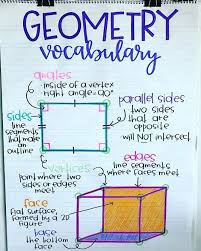 GEOMETRY
vocabulary
angles
inside of a vertex
right angle=90°
parallel sides
two sides
that are
opposite
will NOT intersect
sides
line
segments
that make
an
outline
vertices
point where two
sides or edges
meet
edges
line segments
where faces meet
face
flat surface
formed by a 2D
figure
base
the bottom
face